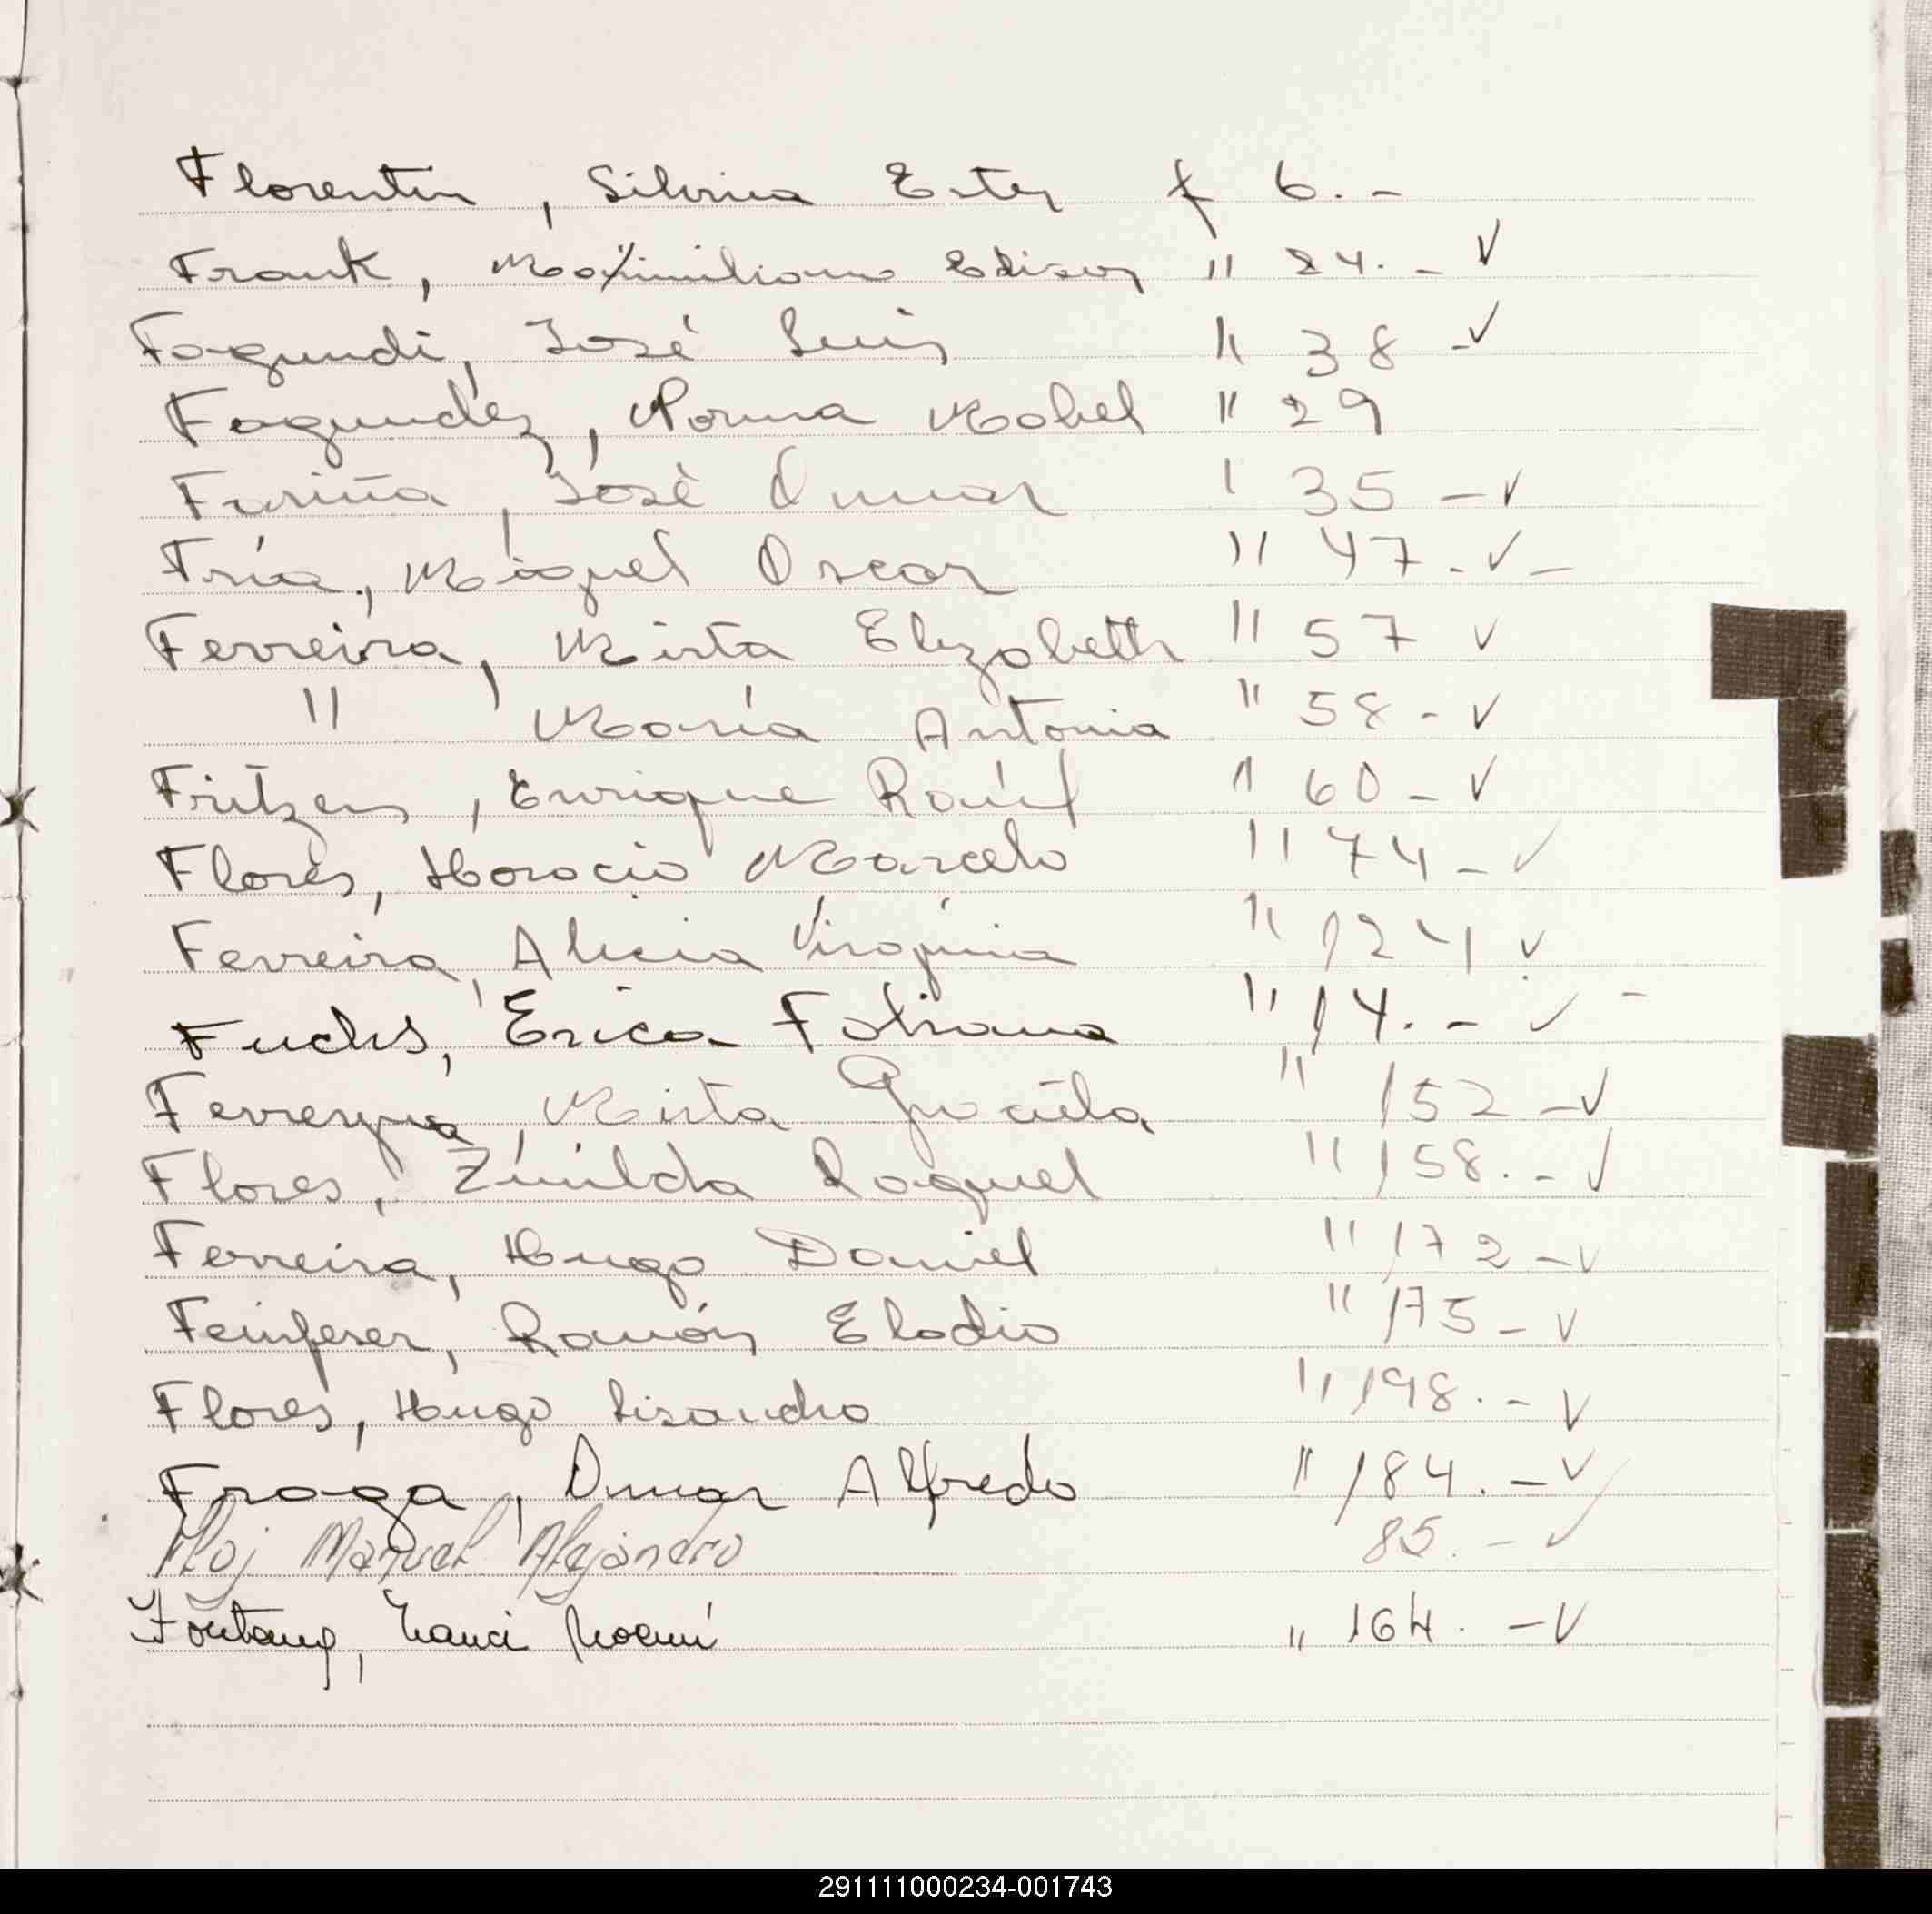 Florentin, Silvina Ester f 6.-
Frank, Maximiliano Edison " 24.- ✓
Fagundi, José Luis " 38 -✓
Fagundez, Norma Mabel " 29
Fariña, José Omar " 35 -✓
Fría, Miguel Oscar " 47.-✓-
Ferreira, Mirta Elizabeth " 57 ✓
" María Antonia " 58-✓
Fritzen, Enrique Raúl " 60-✓
Flores, Horacio Marcelo " 74-✓
Ferreira, Alicia Virginia " 124 ✓
Fuchs, Erica Fabiana " 14.- ✓ -
Ferreyra, Mirta Graciela " 152-✓
Flores, Zunilda Raquel " 158.-✓
Ferreira, Hugo Daniel " 172-✓
Ramón Eladio " 175-✓
Flores, Hugo Lisandro " 198.-✓
Fraga, Omar Alfredo " 184.-✓
Manuel Alejandro 85.-✓
Noemí " 164.-✓
291111000234-001743